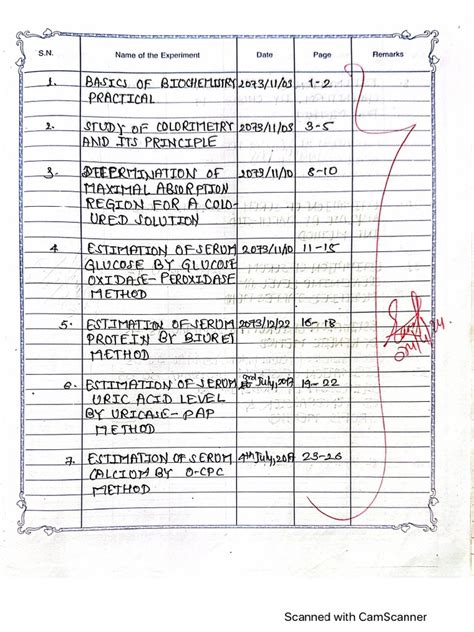 S.N. Name of the Experiment Date Page Remarks
1. BASICS OF BIOCHEMISTRY 2073/11/03 1-2
PRACTICAL
2. STUDY OF COLORIMETRY 2073/11/03 3-5
AND ITS PRINCIPLE
3. DETERMINATION OF 2073/11/10 8-10
MAXIMAL ABSORPTION
REGION FOR A COLO-
URED SOLUTION
4. ESTIMATION OF SERUM 2073/11/10 11-15
GLUCOSE BY GLUCOSE
OXIDASE-PEROXIDASE
METHOD
5. ESTIMATION OF SERUM 2073/12/22 16-18
PROTEIN BY BIURET
METHOD
6. ESTIMATION OF SERUM July, 19-22
URIC ACID LEVEL
BY URICASE-PAP
METHOD
7. ESTIMATION OF SERUM 4th July, 23-26
CALCIUM BY O-CPC
METHOD
Scanned with CamScanner